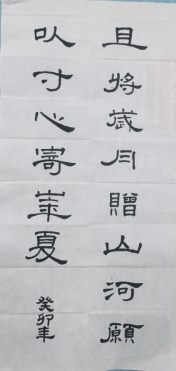 且將歲月贈山河願
以寸心寄華夏
癸卯年